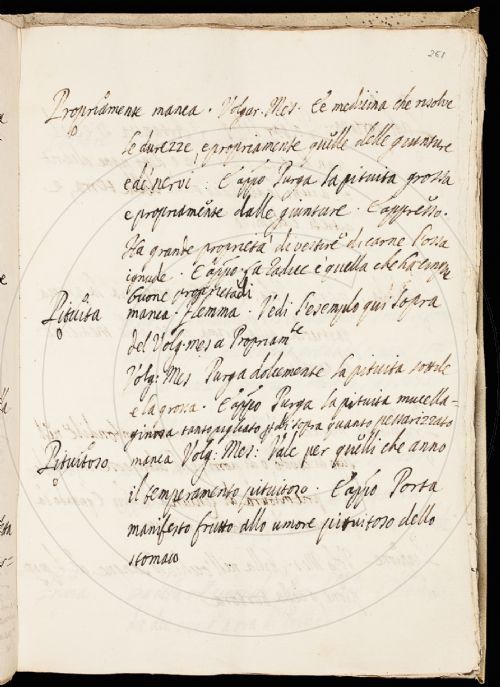 261
Propriamente manca. Volgar. Mes. Ee medicina che risolve
le durezze, e propriamente quelle delle giunture
e de' nervi. E appo Purga la pituita grossa
e propriamente dalle giunture. E appresso.
Ha grande proprietà di vestire di carne l'ossa
ignude. E appo La radice è quella che ha
buone proprietadi
Pituita manca. flemma. Vedi l'esemplo qui sopra
del Volg. mes. a Propriamte
Volg: Mes Purga dolcemente la pituita sottile
e la grossa. E appo Purga la pituita mucella-
ginosa tanto pigliato di sopra quanto
Pituitoso. manca Volg: Mes: Vale per quelli che anno
il temperamento pituitoso. E appo Porta
manifesto frutto allo umore pituitoso dello
stomaco